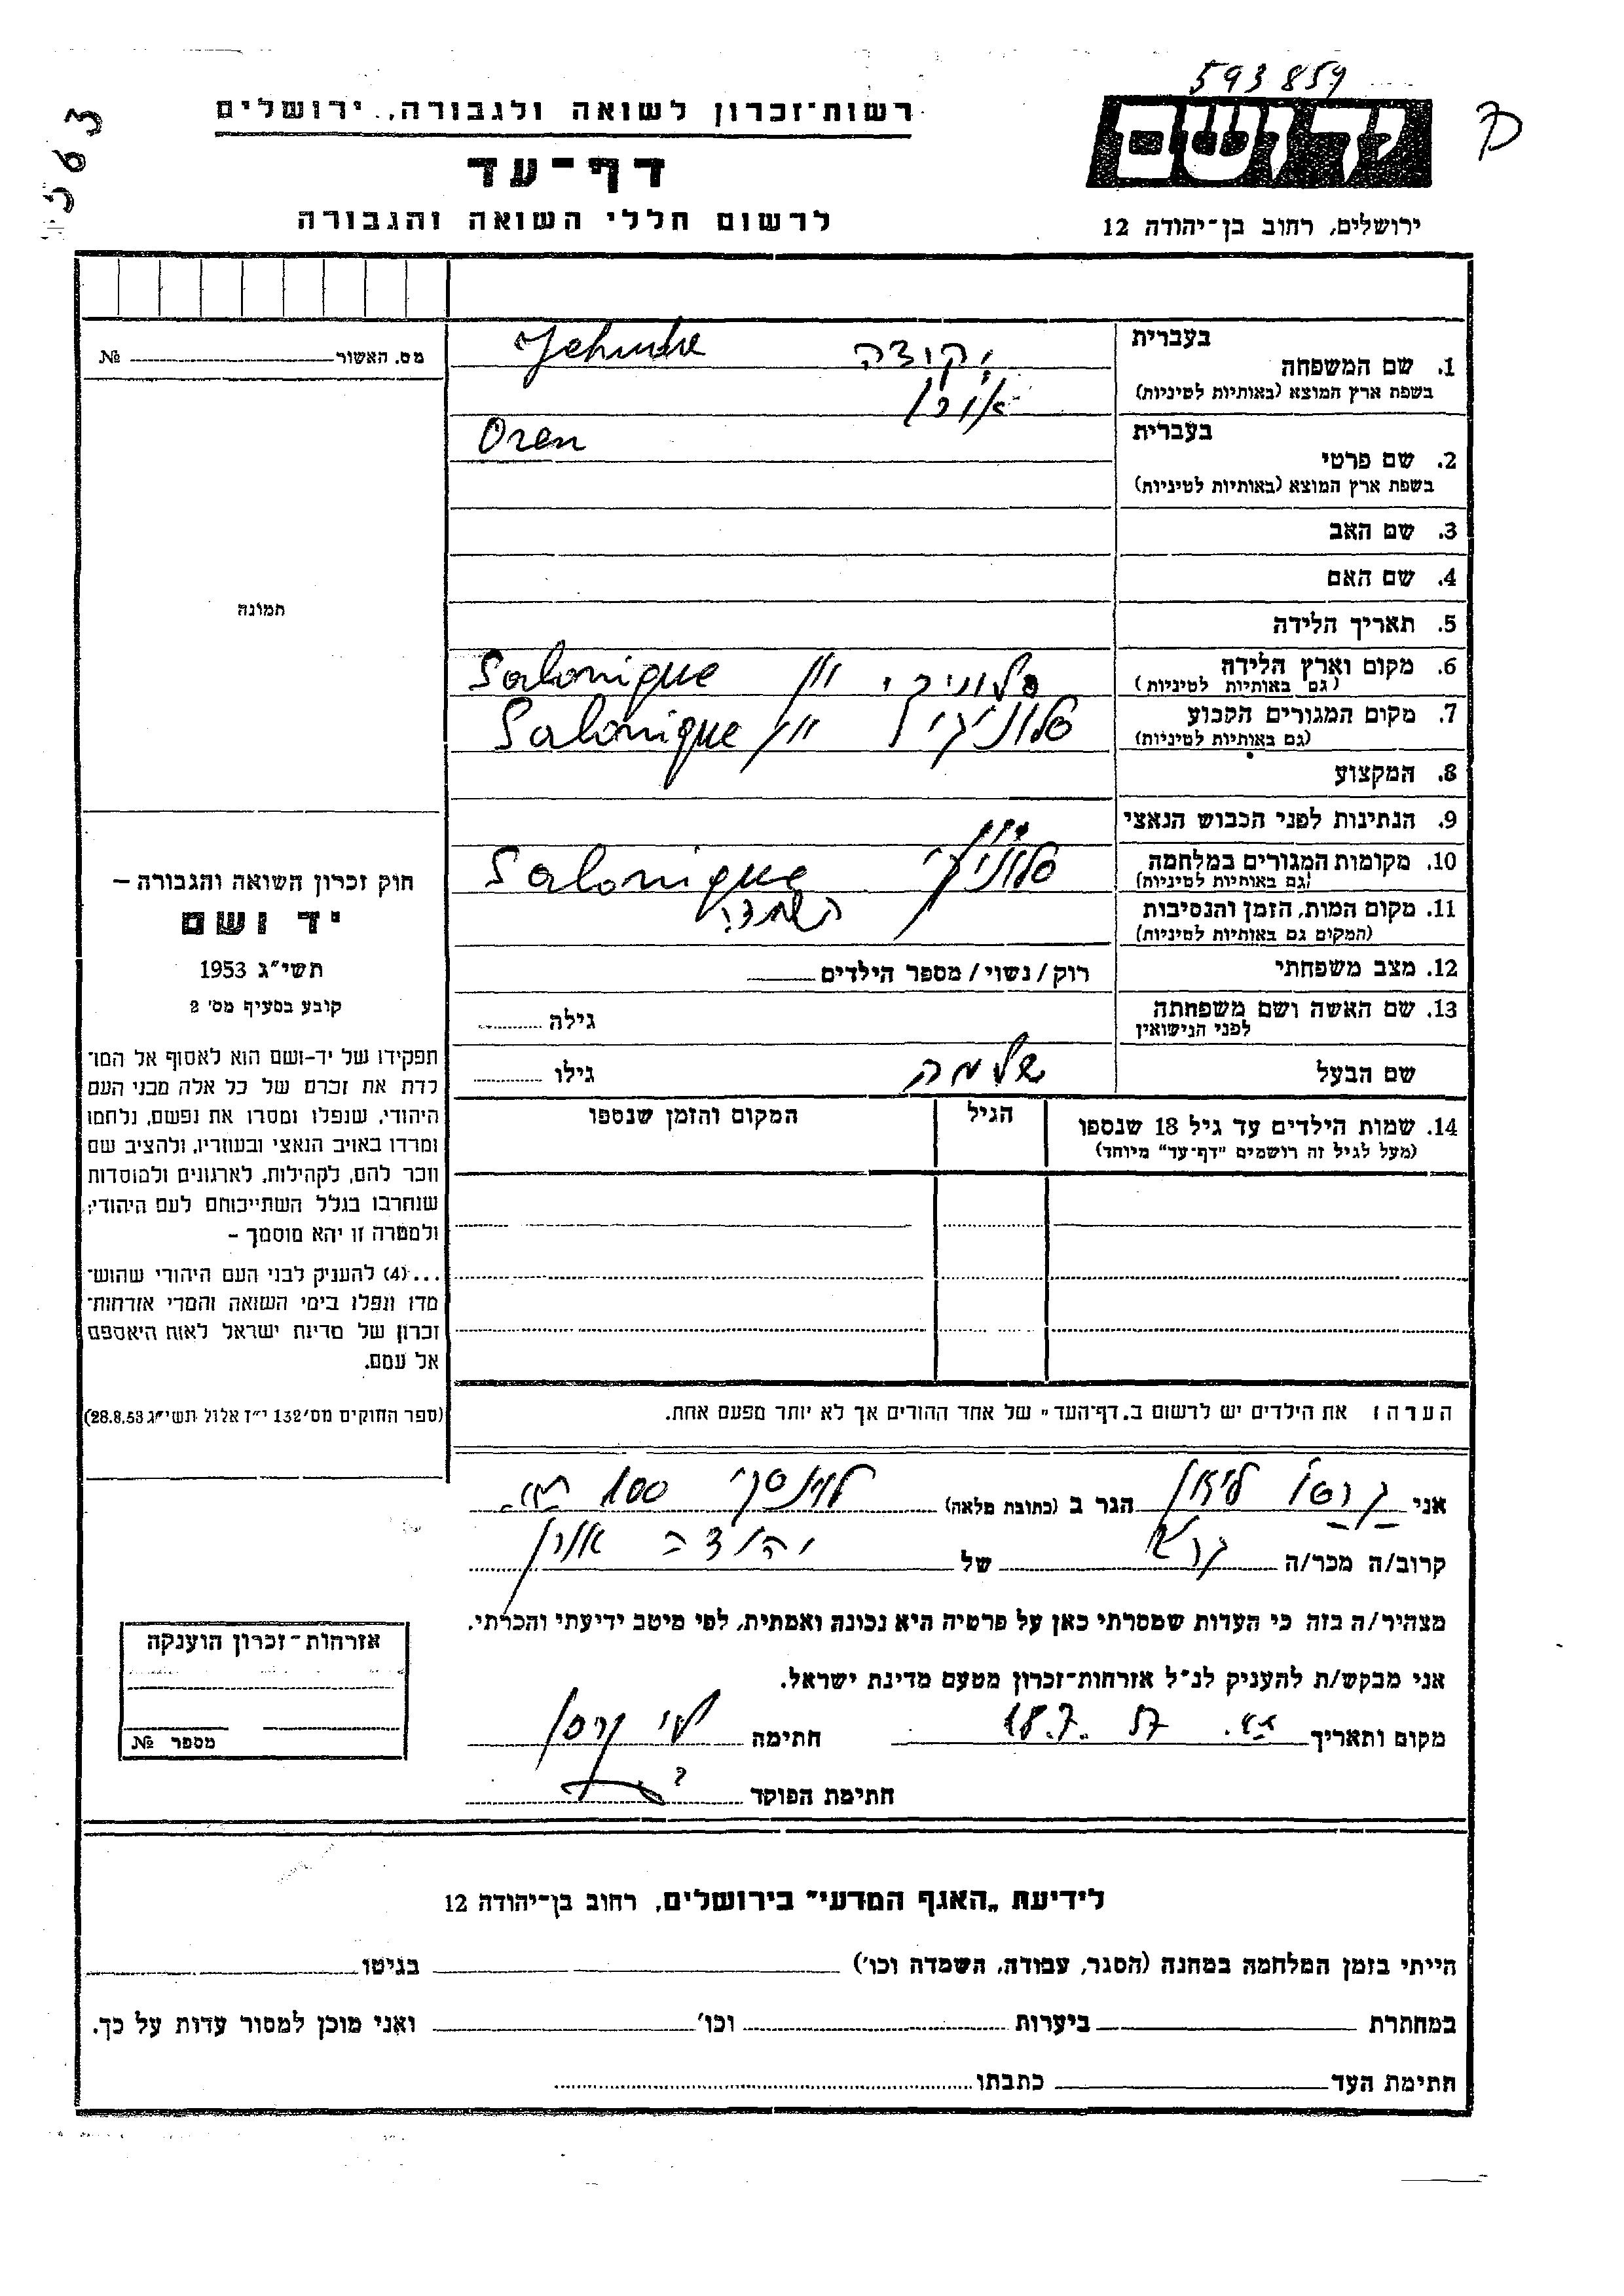 593859
רשות־זכרון לשואה ולגבורה, ירושלים
דף־עד
לרשום חללי השואה והגבורה
יד ושם
ירושלים, רחוב בן־יהודה 12
מס. האשור № 
בעברית
1. שם המשפחה
יהודה
(בשפת ארץ המוצא (באותיות לטיניות
אורן
בעברית
Oren
2. שם פרטי
(בשפת ארץ המוצא (באותיות לטיניות
3. שם האב
4. שם האם
5. תאריך הלידה
תמונה
6. מקום וארץ הלידה
(גם באותיות לטיניות)
סלוניקי יוון Salonique
7. מקום המגורים הקבוע
(גם באותיות לטיניות)
סלוניקי יוון Salonique
8. המקצוע
9. הנתינות לפני הכבוש הנאצי
יוון
10. מקומות המגורים במלחמה
(גם באותיות לטיניות)
סלוניקי Salonique
11. מקום המות, הזמן והנסיבות
(המקום גם באותיות לטיניות)
השמדה
12. מצב משפחתי רוק/נשוי/מספר הילדים
13. שם האשה ושם משפחתה
לפני הנישואין
גילה
שם הבעל שלמה גילו
14. שמות הילדים עד גיל 18 שנספו
(מעל לגיל זה רושמים "דף־עד" מיוחד)
הגיל
המקום והזמן שנספו
חוק זכרון השואה והגבורה –
יד ושם
תשי"ג 1953
קובע בסעיף מס' 2
תפקידו של יד-ושם הוא לאסוף אל המו־
לדת את זכרם של כל אלה מבני העם
היהודי, שנפלו ומסרו את נפשם, נלחמו
ומרדו באויב הנאצי ובעוזריו, ולהציב שם
וזכר להם, לקהילות, לארגונים ולמוסדות
שנחרבו בגלל השתייכותם לעם היהודי;
ולמטרה זו יהא מוסמך –
...(4) להעניק לבני העם היהודי שהוש־
מדו ונפלו בימי השואה והמרי אזרחות־
זכרון של מדינת ישראל לאות היאספם
אל עמם.
(ספר החוקים מס' 132 י"ז אלול תשי"ג 28.8.53)
הערה: את הילדים יש לרשום ב"דף־העד" של אחד ההורים אך לא יותר מפעם אחת.
אני ליאון הגר ב (כתובת מלאה) לוינסקי 100
קרוב/ה מכר/ה של יהודה אורן
מצהיר/ה בזה כי העדות שמסרתי כאן על פרטיה היא נכונה ואמתית, לפי מיטב ידיעתי והכרתי.
אני מבקש/ת להעניק לנ"ל אזרחות־זכרון מטעם מדינת ישראל.
מקום ותאריך 18.7.57 חתימה
חתימת הפוקד
אזרחות־זכרון הוענקה
מספר №
לידיעת „האגף המדעי" בירושלים, רחוב בן־יהודה 12
הייתי בזמן המלחמה במחנה (הסגר, עבודה, השמדה וכו') בגיטו
במחתרת ביערות וכו' ואני מוכן למסור עדות על כך.
חתימת העד כתבתו